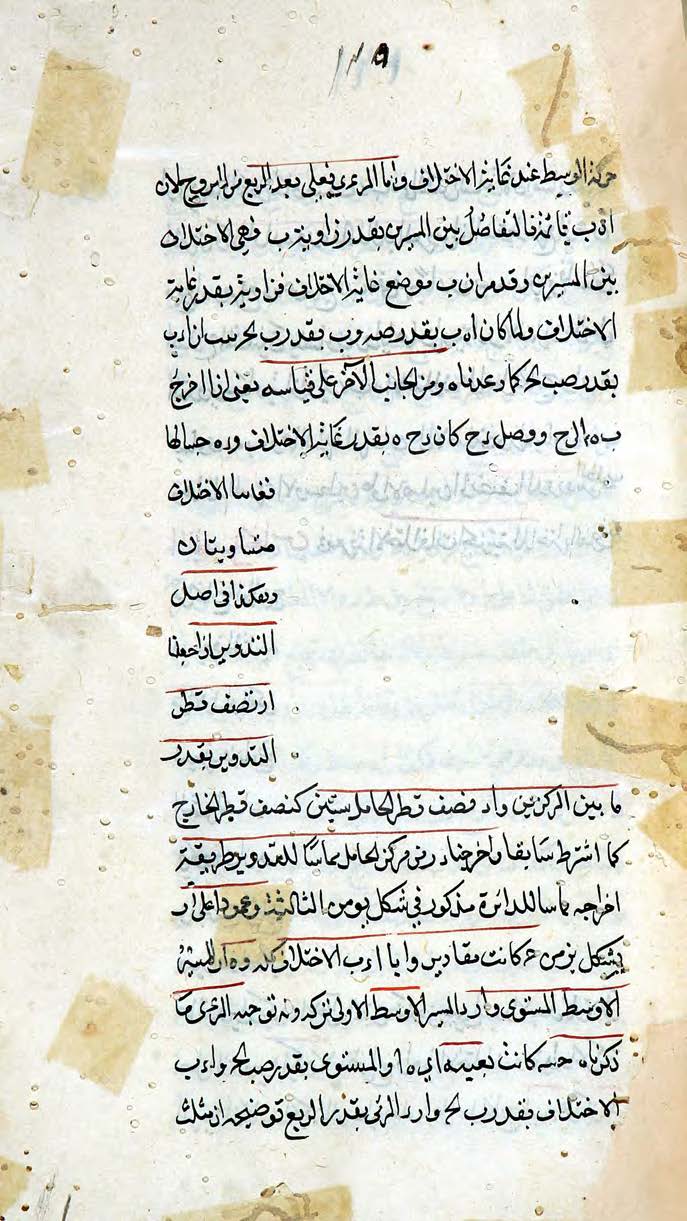 حركة الوسيط عند غاية الاختلاف واما المرءى فعلى بعد الربع من البروج لان
ا د ب قائمة فالتفاضل بين المسيرين بقدر زاوية ب فهى الاختلاف
بين المسيرين وقد مر ان ب موضع غاية الاختلاف فزاوية بقدر غاية
الاختلاف ولما كان ا د ب بقدر ص و ب بقدر ب لح
بقدر صب لح كما وعدناه ومن الجانب الآخر على قياسه يعنى اذا اخرج
ب ه الى ح ووصل د ح كان د ح ه بقدر غاية الاختلاف و ه حسالها
فغايتا الاختلاف
متساويتان
وهكذا فى اصل
التدوير اذا جعلنا
ا ر نصف قطر
التدوير بقدر
ما بين المركزين و ا د نصف قطر الحامل ستين كنصف قطر الخارج
كما اشترط سابقا واخرجنا د ر من مركز الحامل مماسا للتدوير طريقة
اخراجه مماسا للدائرة مذكور فى شكل يو من الثالثة وعمودا على ا ر
بشكل يز من كانت مقادير زوايا ا ب الاختلاف كله و ه ا ر المسير
الاوسط المستوى و ا ر د المسير الاوسط الاولى تركه ونه توجيه المرءى ما
ذكرناه كانت بعينه اى ه ا و المستوى بقدر صب لح و ا ء ب
الاختلاف بقدر ب لح و ا ر د المرئى بقدر الربع توضيحه ان مثلث